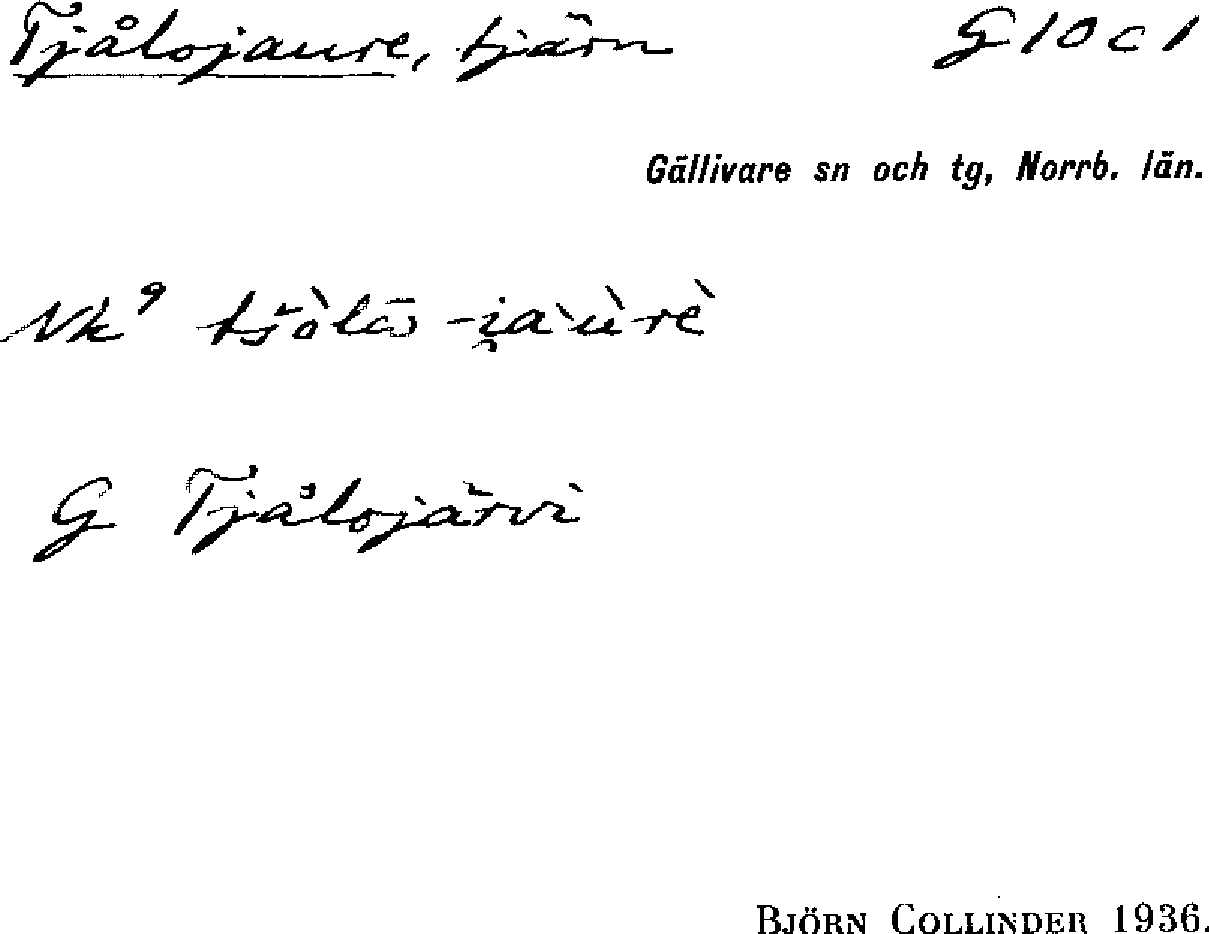 Tjålojaure, tjärn G 10 c 1
Gällivare sn och tg, Norrb. län.
Nk⁹
G Tjålojärvi
BJÖRN COLLINDER 1936.